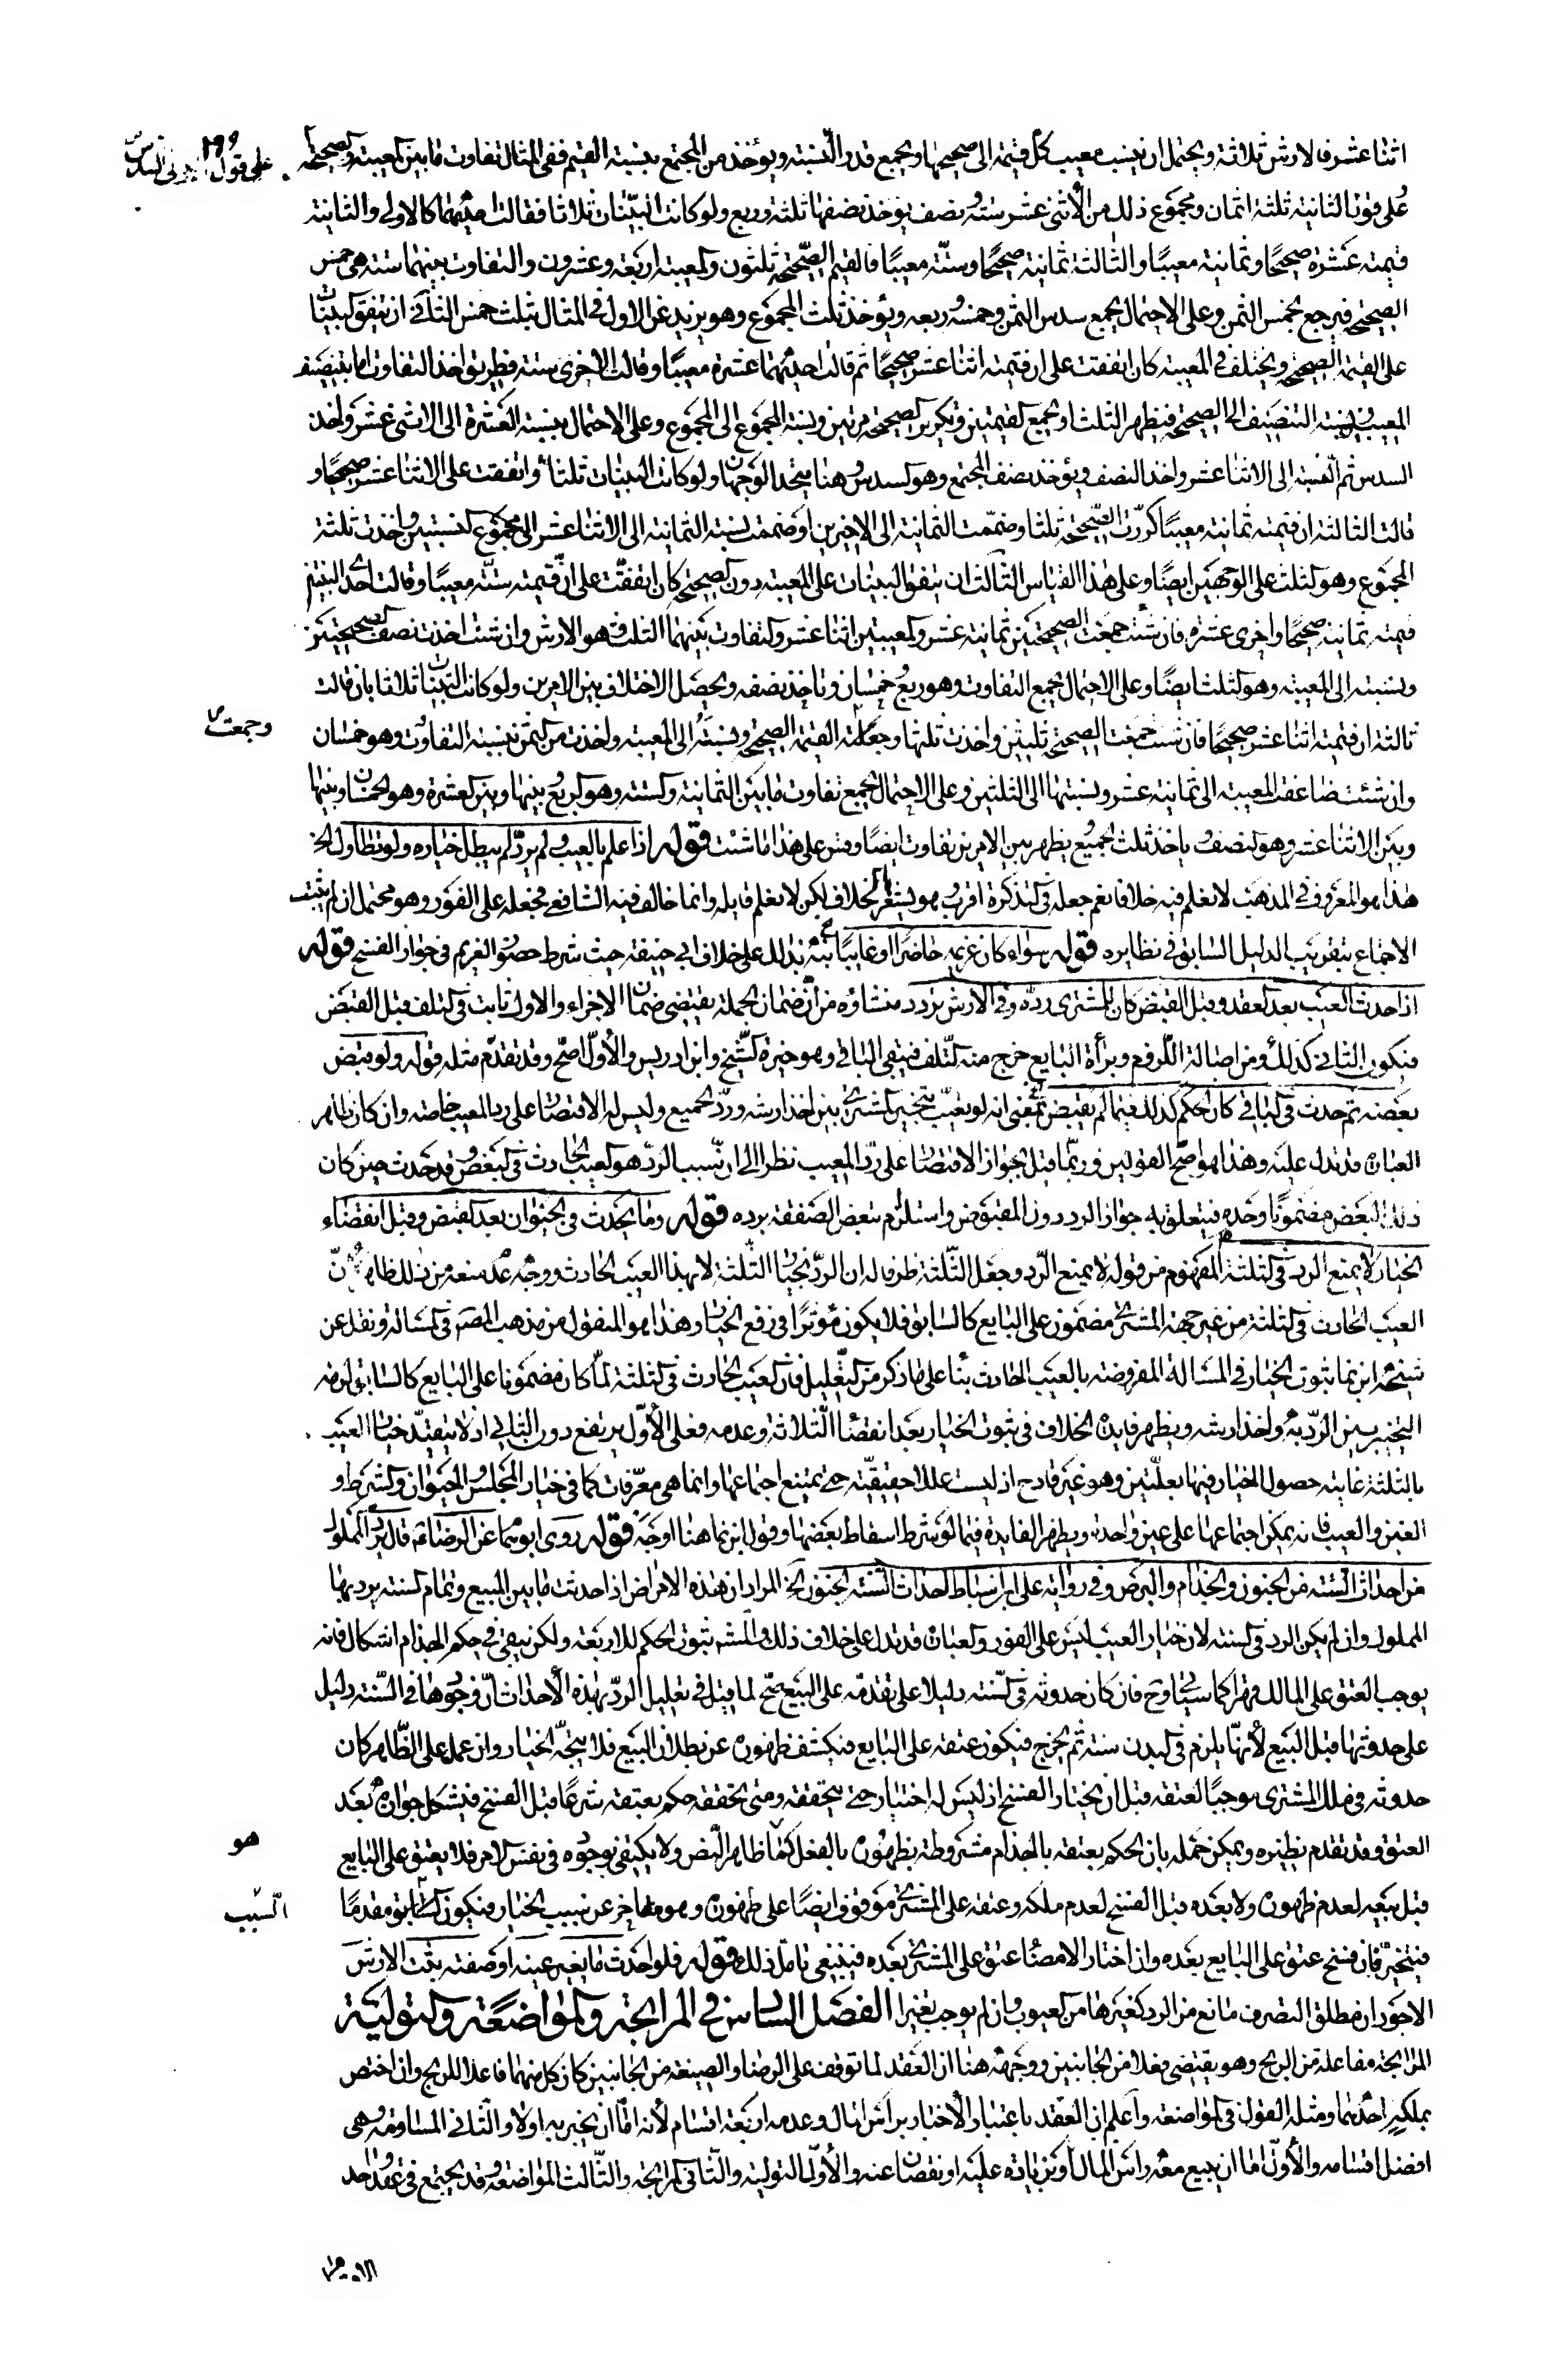 اثنا عشر فالارش ثلاثة ويحتمل ان ينسب معيب كل قيمة الى صحيحها ويجمع قدر النسبة ويؤخذ من المجتمع بنسبة القيم ففي المثال تفاوت ما بين المعيبة والصحيحة
على قول الثانية ثلثة اثمان ومجموع ذلك من الأثنى عشر ستة ونصف يؤخذ نصفها ثلثة وربع ولو كانت البينات ثلاثا فقالت منهما كالاولى والثانية
قيمته عشرة صحيحًا وثمانية معيبًا والثالثة ثمانية صحيحًا وستة معيبًا فالقيم الصحيحة ثلثون والمعيبة اربعة وعشرون والتفاوت بينهما ستة هي خمس
الصحيحة فيرجع بخمس الثمن وعلى الاحتمال يجمع سدس الثمن وخمسه وربعه ويؤخذ ثلث المجموع وهو يزيد عن الاول في المثال بثلث خمس الثاني ان يتفق البينات
على القيمة الصحيحة ويختلف في المعيبة كان اتفقت على ان قيمته اثنا عشر صحيحًا ثم قالت احديهما عشرة معيبًا وقالت الاخرى ستة فطريق اخذ التفاوت اما بتنصيف
المعيب ونسبة التنصيف الى الصحيحة فيظهر الثلث او بجمع القيمتين وتكرير الصحيحة مرتين ونسبة المجموع الى المجموع وعلى الاحتمال بنسبة العشرة الى الاثنى عشر واخذ
السدس ثم الستة الى الاثنا عشر واخذ النصف ويؤخذ نصف المجتمع وهو السدس وهنا يتحد الوجهان ولو كانت البينات ثلثا واتفقت على الاثنا عشر صحيحًا و
قالت الثالثة ان قيمته ثمانية معيبًا كررت الصحيحة ثلثا وضممت الثمانية الى الاخيرين او ضممت نسبة الثمانية الى الاثنا عشر الى مجموع النسبتين واخذت ثلثة
المجموع وهو الثلث على الوجهين ايضًا وعلى هذا القياس الثالث ان يتفق البينات على المعيبة دون الصحيحة كان اتفقت على ان قيمته ستة معيبًا وقالت احدى البينتين
قيمته ثمانية صحيحًا واخرى عشرة فان شئت جمعت الصحيحتين ثمانية عشر والمعيبتين اثنا عشر والتفاوت بينهما الثلث فهو الارش وان شئت اخذت نصف الصحيحتين
ونسبته الى المعيبة وهو الثلث ايضًا وعلى الاحتمال يجمع التفاوت وهو ربع وخمسان وتاخذ نصفه ويحصل الاختلاف بين الامرين ولو كانت البينات ثلاثا بان قالت
ثالثة ان قيمته اثنا عشر صحيحًا فان شئت جمعت الصحيحة ثلثين واخذت ثلثها وجعلته القيمة الصحيحة ونسبته الى المعيبة واخذت من الثمن بنسبة التفاوت وهو خمسان
وان شئت ضاعفت المعيبة الى ثمانية عشر ونسبتها الى الثلثين وعلى الاحتمال يجمع تفاوت ما بين الثمانية والستة وهو الربع وبينها وبين العشرة وهو الخمسان وبينها
وبين الاثنا عشر وهو النصف ياخذ ثلث الجميع ويظهر بين الامرين تفاوت ايضًا وقس على هذا ما شئت قوله اذا علم بالعيب ولم يرد لم يبطل خياره ولو تطاول الخ
هذا هو المعروف في المذهب لا نعلم فيه خلافا نعم جعله في التذكرة اقرب وهو يشعر بالخلاف لكن لا نعلم قايله وانما خالف فيه الشافعي فجعله على الفور وهو محتمل ان لم يثبت
الاجماع بتقريب الدليل السابق في نظايره قوله سواء كان غريمه حاضرًا او غايبًا نبه بذلك على خلاف ابي حنيفة حيث شرط حضور الغريم في جواز الفسخ قوله
اذا حدث العيب بعد العقد وقبل القبض كان للمشترى رده وفي الارش تردد منشاؤه من أن ضمان الجملة يقتضى ضمان الاجزاء والاول ثابت في التلف قبل القبض
فيكون الثاني كذلك ومن اصالة اللزوم وبرأة البايع خرج منه التلف فيبقى الباقي وهو خيرة الشيخ وابن ادريس والأول اصح وقد تقدم مثله قوله ولو قبض
بعضه ثم حدث في الباقي كان الحكم كذلك فيما لم يقبض بمعنى انه لو تعيب تخير المشترى بين اخذ ارشه ورد الجميع وليس له الاقتصار على رد المعيب خاصة وان كان ظاهر
العبارة قد تدل عليه وهذا هو اصح القولين وربما قيل بجواز الاقتصار على رد المعيب نظرا الى ان سبب الرد هو العيب الحادث في البعض وقد حدث حين كان
ذلك البعض مضمونًا وحده فيتعلق به جواز الرد دون المقبوض واستلزم تبعض الصفقة برده قوله وما يحدث في الحيوان بعد القبض وقبل انقضاء
الخيار لا يمنع الرد في الثلثة المفهوم من قوله لا يمنع الرد وجعل الثلثة ظرفا له ان الرد بخيار الثلثة لا بهذا العيب الحادث ووجه عدم منعه من ذلك ظاهر لان
العيب الحادث في الثلثة من غير جهة المشترى مضمون على البايع كالسابق فلا يكون مؤثرًا في رفع الخيار وهذا هو المنقول من مذهب المصنف في المسألة ونقل عن
شيخه ابن نما ثبوت الخيار في المسألة المفروضة بالعيب الحادث بناء على ما ذكر من التعليل فان العيب الحادث في الثلثة لما كان مضمونا على البايع كالسابق لزمه
التخيير بين الرد به واخذ ارشه ويظهر فايدة الخلاف في ثبوت الخيار بعد انقضاء الثلاثة وعدمه فعلى الأول يرتفع دون الثاني اذ لا يتقيد خيار العيب
بالثلثة غايته حصول الخيار فيها بعلتين وهو غير قادح اذ ليست عللا حقيقية حتى يمتنع اجتماعها وانما هي معرفات كما في خيار المجلس والحيوان والشرط و
الغبن والعيب فانه يمكن اجتماعها على عين واحدة ويظهر الفايدة فيما لو شرط اسقاط بعضها وقول ابن نما هنا اوجه قوله روى ابو همام عن الرضا ع قال يرد المملوك
من احداث السنة من الجنون والجذام والبرص وفي رواية على بن اسباط احداث السنة الجنون الخ المراد ان هذه الامراض اذا حدثت ما بين البيع وتمام السنة يرد بها
المملوك وان لم يكن الرد في السنة لان خيار العيب ليس على الفور والعبارة قد تدل على خلاف ذلك والمشهور ثبوت الحكم للاربعة ولكن يبقى في حكم الجذام اشكال فانه
يوجب العتق على المالك قهرا كما سياتي وحينئذ فان كان حدوثه في السنة دليلا على تقدمه على البيع كما قيل في تعليل الرد بهذه الأحداث أن وجودها في السنة دليل
على حدوثها قبل البيع لأنها تكمن في البدن سنة ثم يخرج فيكون عتقه على البايع فيكشف ظهوره عن بطلان البيع فلا يتجه الخيار وان عمل على الظاهر كان
حدوثه في ملك المشترى موجبًا لعتقه قبل ان يختار الفسخ اذ ليس له اختيار حتى يتحققه ومتى تحققه حكم بعتقه شرعًا قبل الفسخ فيشكل جوازه بعد
العتق وقد تقدم نظيره ويمكن حله بان الحكم بعتقه بالجذام مشروطة بظهوره بالفعل كما هو ظاهر النص ولا يكتفى بوجوده في نفس الامر فلا يعتق على البايع
قبل بيعه لعدم ظهوره ولا بعده قبل الفسخ لعدم ملكه وعتقه على المشترى موقوف ايضًا على ظهوره وهو متاخر عن سبب الخيار فيكون السابق مقدمًا
فيتخير فان فسخ عتق على البايع بعده وان اختار الامضاء عتق على المشترى بعده فينبغى تامل ذلك قوله فلو احدث ما يغير عينه او صفته ثبت الارش
الاجود ان مطلق التصرف مانع من الرد كغيرها من العيوب وان لم يوجب تغيرا الفصل السادس في المرابحة والمواضعة والتولية
المرابحة مفاعلة من الربح وهو يقتضى فعلا من الجانبين ووجهه هنا ان العقد لما توقف على الرضا والصيغة من الجانبين كان كل منهما فاعلا للربح وان اختص
بملكه احدهما ومثله القول في المواضعة واعلم ان العقد باعتبار الأخبار براس المال وعدمه اربعة اقسام لأنه اما ان يخبر به اولا والثاني المساومة وهى
افضل اقسامه والأول اما ان يبيع معه براس المال او بزيادة عليه او نقصان عنه والأول التولية والثاني المرابحة والثالث المواضعة وقد يجتمع في عقد واحد
وجمعت
هو
السبب